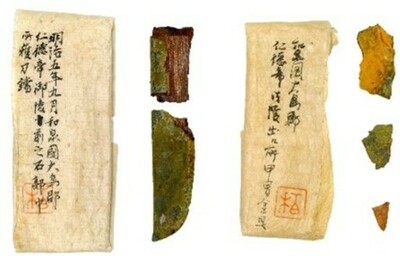 明治五年九月和泉國大鳥郡
仁徳帝御陵前之石郭中
所獲刀鐺
柏
和泉國大鳥郡
仁徳帝御陵出ル所甲冑金具
柏